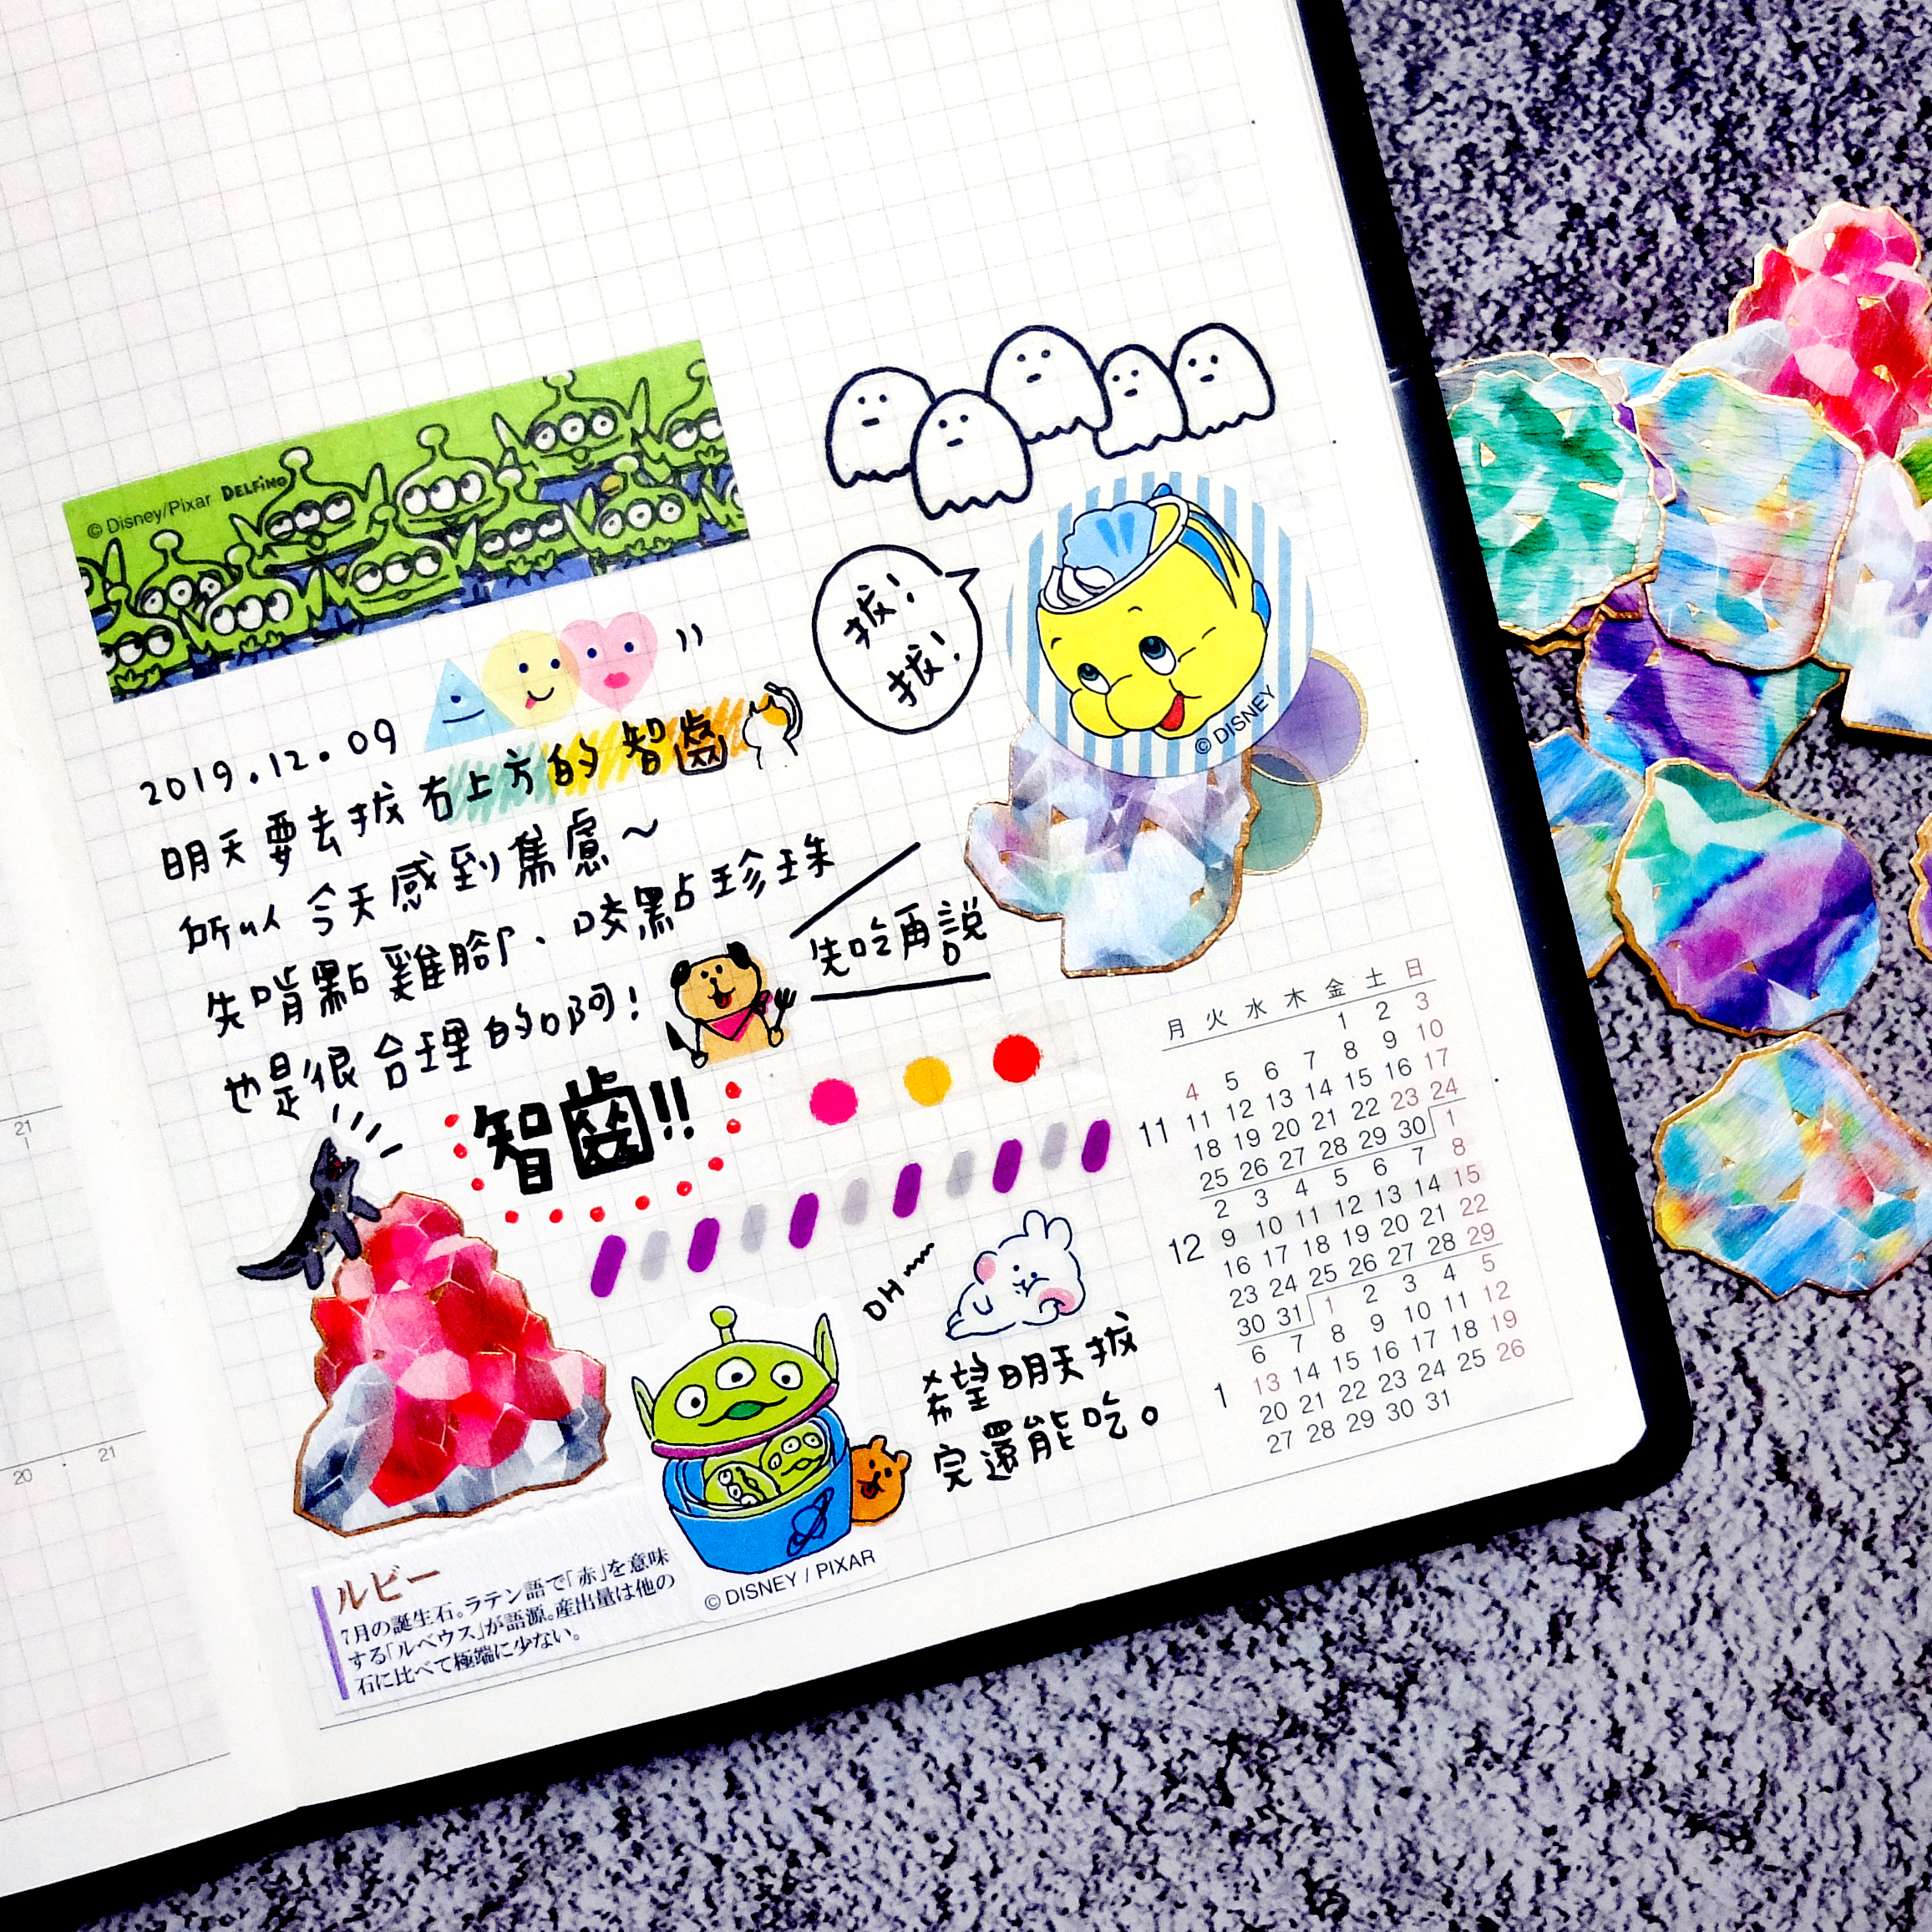 © Disney/Pixar DELFINO
拔!
拔!
© DISNEY
2019.12.09
明天要去拔右上方的智齒
所以今天感到焦慮~
先啃點雞腳、咬點珍珠
也是很合理的啊!
先吃再說
智齒!!
月 火 水 木 金 土 日
1 2 3
4 5 6 7 8 9 10
11 11 12 13 14 15 16 17
18 19 20 21 22 23 24
25 26 27 28 29 30 1
2 3 4 5 6 7 8
12 9 10 11 12 13 14 15
16 17 18 19 20 21 22
23 24 25 26 27 28 29
30 31 1 2 3 4 5
6 7 8 9 10 11 12
1 13 14 15 16 17 18 19
20 21 22 23 24 25 26
27 28 29 30 31
OH
希望明天拔
完還能吃。
© DISNEY / PIXAR
ルビー
7月の誕生石。ラテン語で「赤」を意味
する「ルベウス」が語源。産出量は他の
石に比べて極端に少ない。
21
20
21